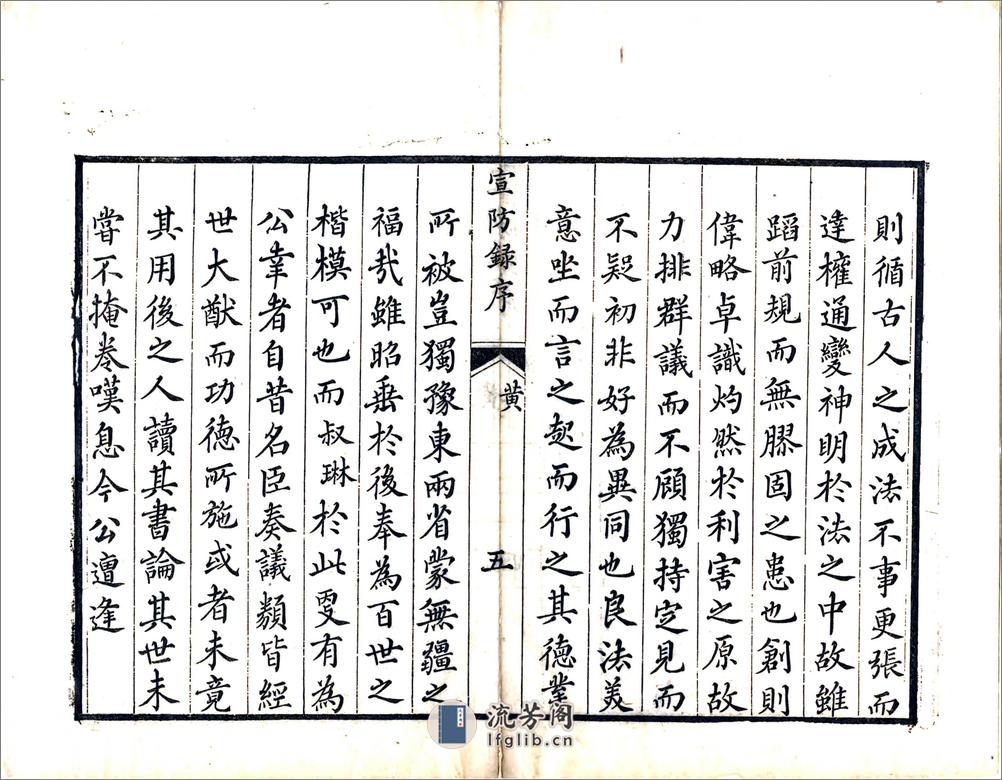 則循古人之成法不事更張而
達權通變神明於法之中故雖
蹈前規而無膠固之患也創則
偉略卓識灼然於利害之原故
力排群議而不顧獨持定見而
不疑初非好為異同也良法美
意坐而言之起而行之其德業
宣防録序
黃
五
所被豈獨豫東兩省蒙無疆之
福哉雖昭垂於後奉為百世之
楷模可也而叔琳於此更有為
公幸者自昔名臣奏議類皆經
世大猷而功德所施或者未竟
其用後之人讀其書論其世未
嘗不掩卷嘆息今公遭逢
流芳阁
lfglib.cn